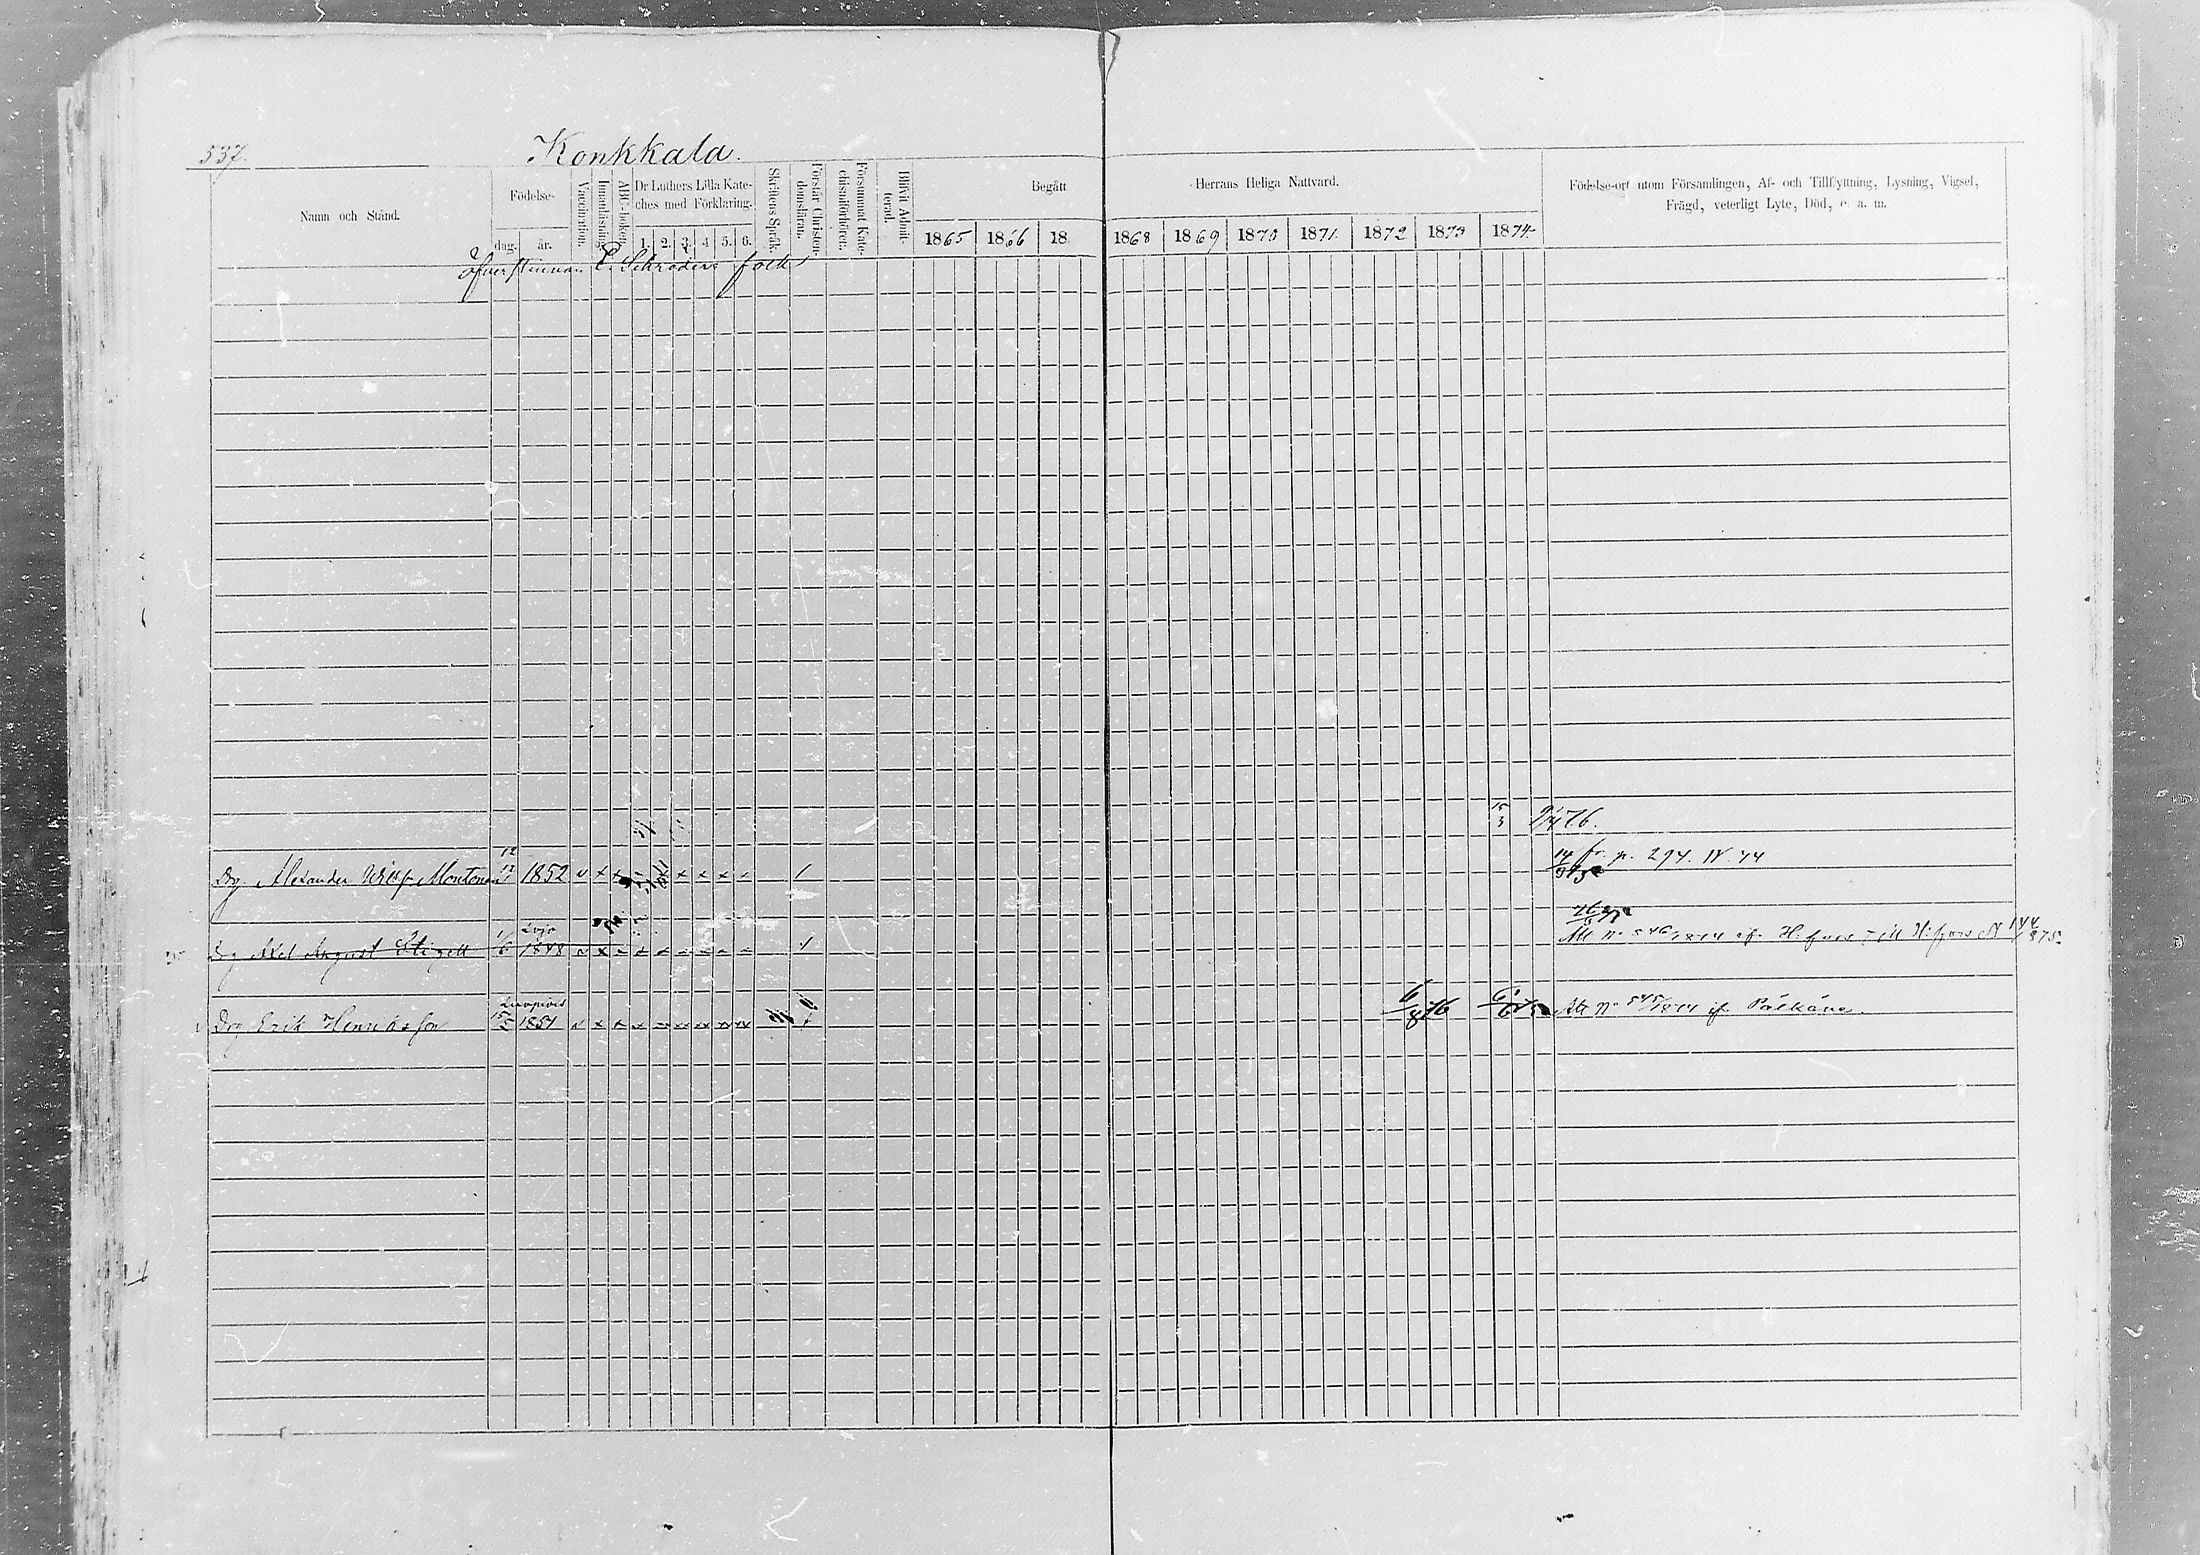 537.
Konkkala.
Namn och Stånd.
Födelse-
dag. år.
Vaccination.
Innanläsning.
ABC-boken.
Dr Luthers Lilla Kate-
ches med Förklaring.
1. 2. 3. 4 5. 6.
Skriftens Språk.
Förstår Christen-
domsläran.
Försummat Kate-
chismiförhören.
Blifvit Admit-
terad.
Begått
Herrans Heliga Nattvard.
1865 1866 18 1868 1869 1870 1871. 1872 1873 1874
Födelse-ort utom Församlingen, Af- och Tillflyttning, Lysning, Vigsel,
Frägd, veterligt Lyte, Död, o. a. m.
Öfverstinnan E. Schröders folk
15
3
12
Drg. Alexander Montonen 12 1852
14 fr. p. 294. IV. 74
Lojo
Drg Axel August Stigell 1/6 1848
Att No 546/1874 af H:fors till H:fors N 144
1875.
Luopiois
Drg Erik Henriksson 15/5 1851
Att No 545/1874 if. Pälkäne.